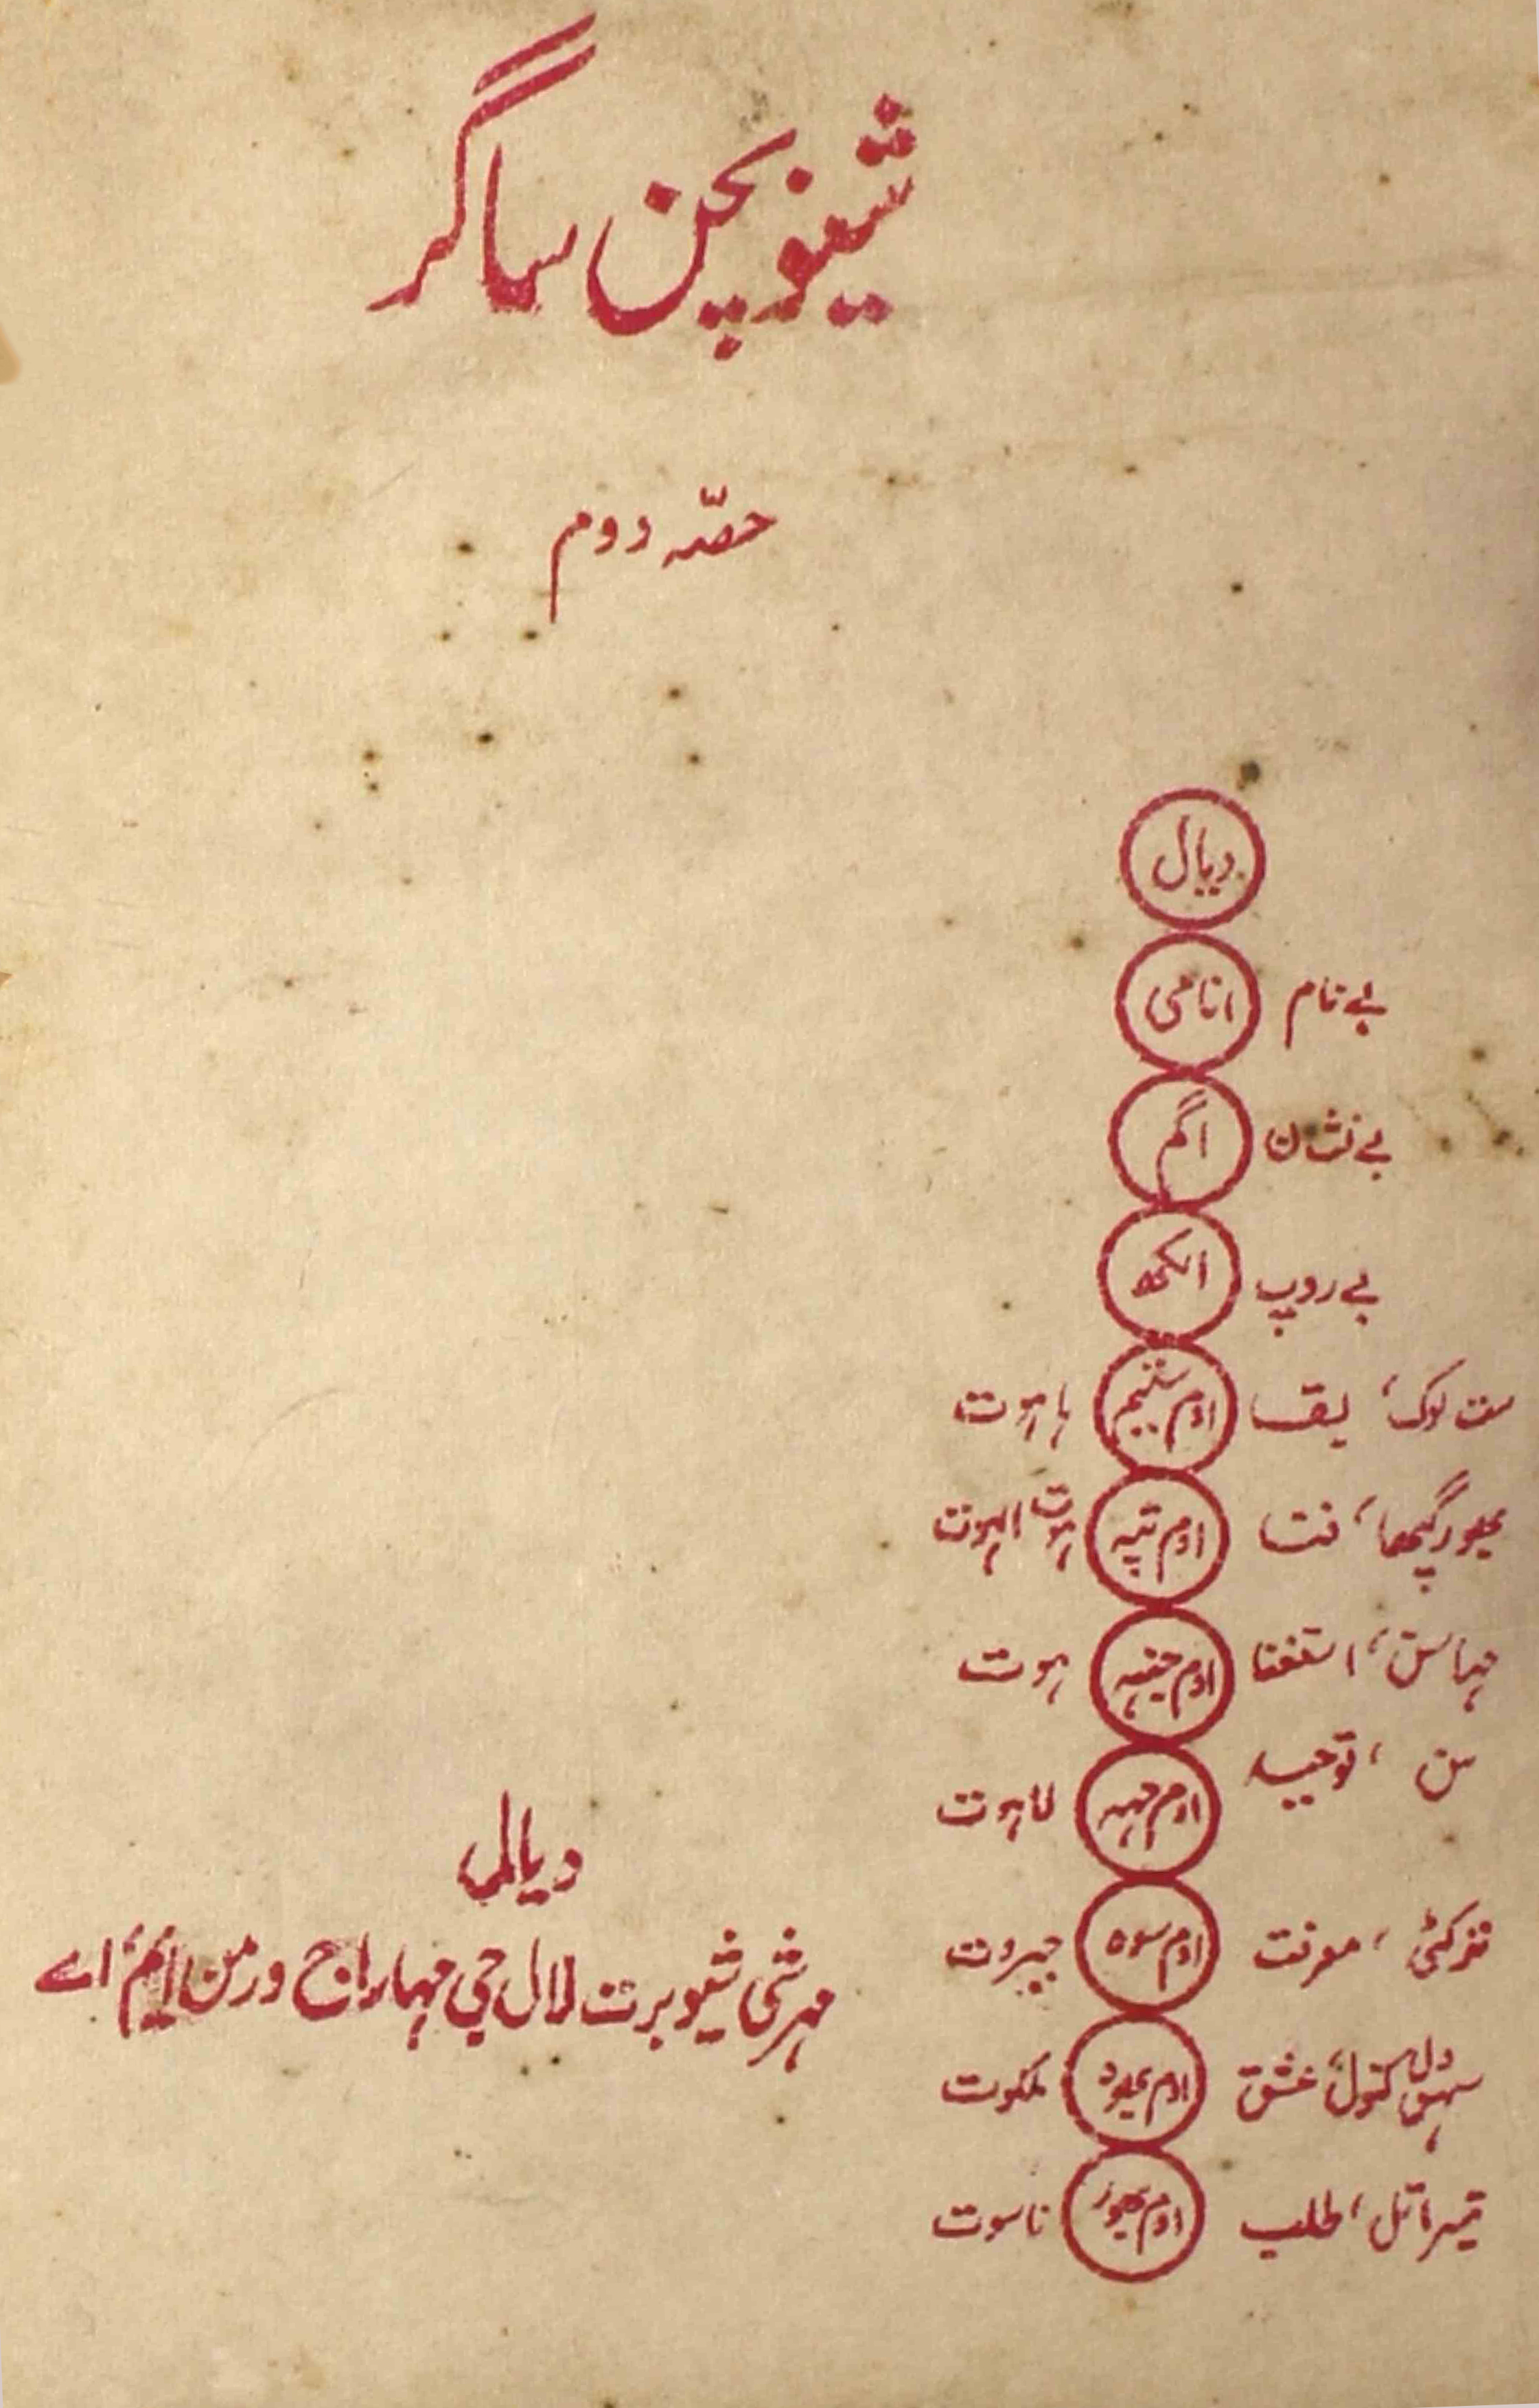 شیو بچن ساگر
حصّہ دوم
دیال
بے نام انامی
بے نشان اگم
بے روپ الکھ
ست لوک، بقا اوم ستیم ہاہوت
بھور گپھا، فنا اوم تپہ ہوت الہوت
مہاسن، استغنا اوم جنہ ہوت
سن، توحید اوم مہہ لاہوت
ترکٹی، معرفت اوم سوہ جبروت
سہس دل کنول، عشق اوم بھوہ ملکوت
تیسرا تل، طلب اوم بھور ناسوت
دیال
مہرشی شیو برت لال جی مہاراج ورمن ایم اے